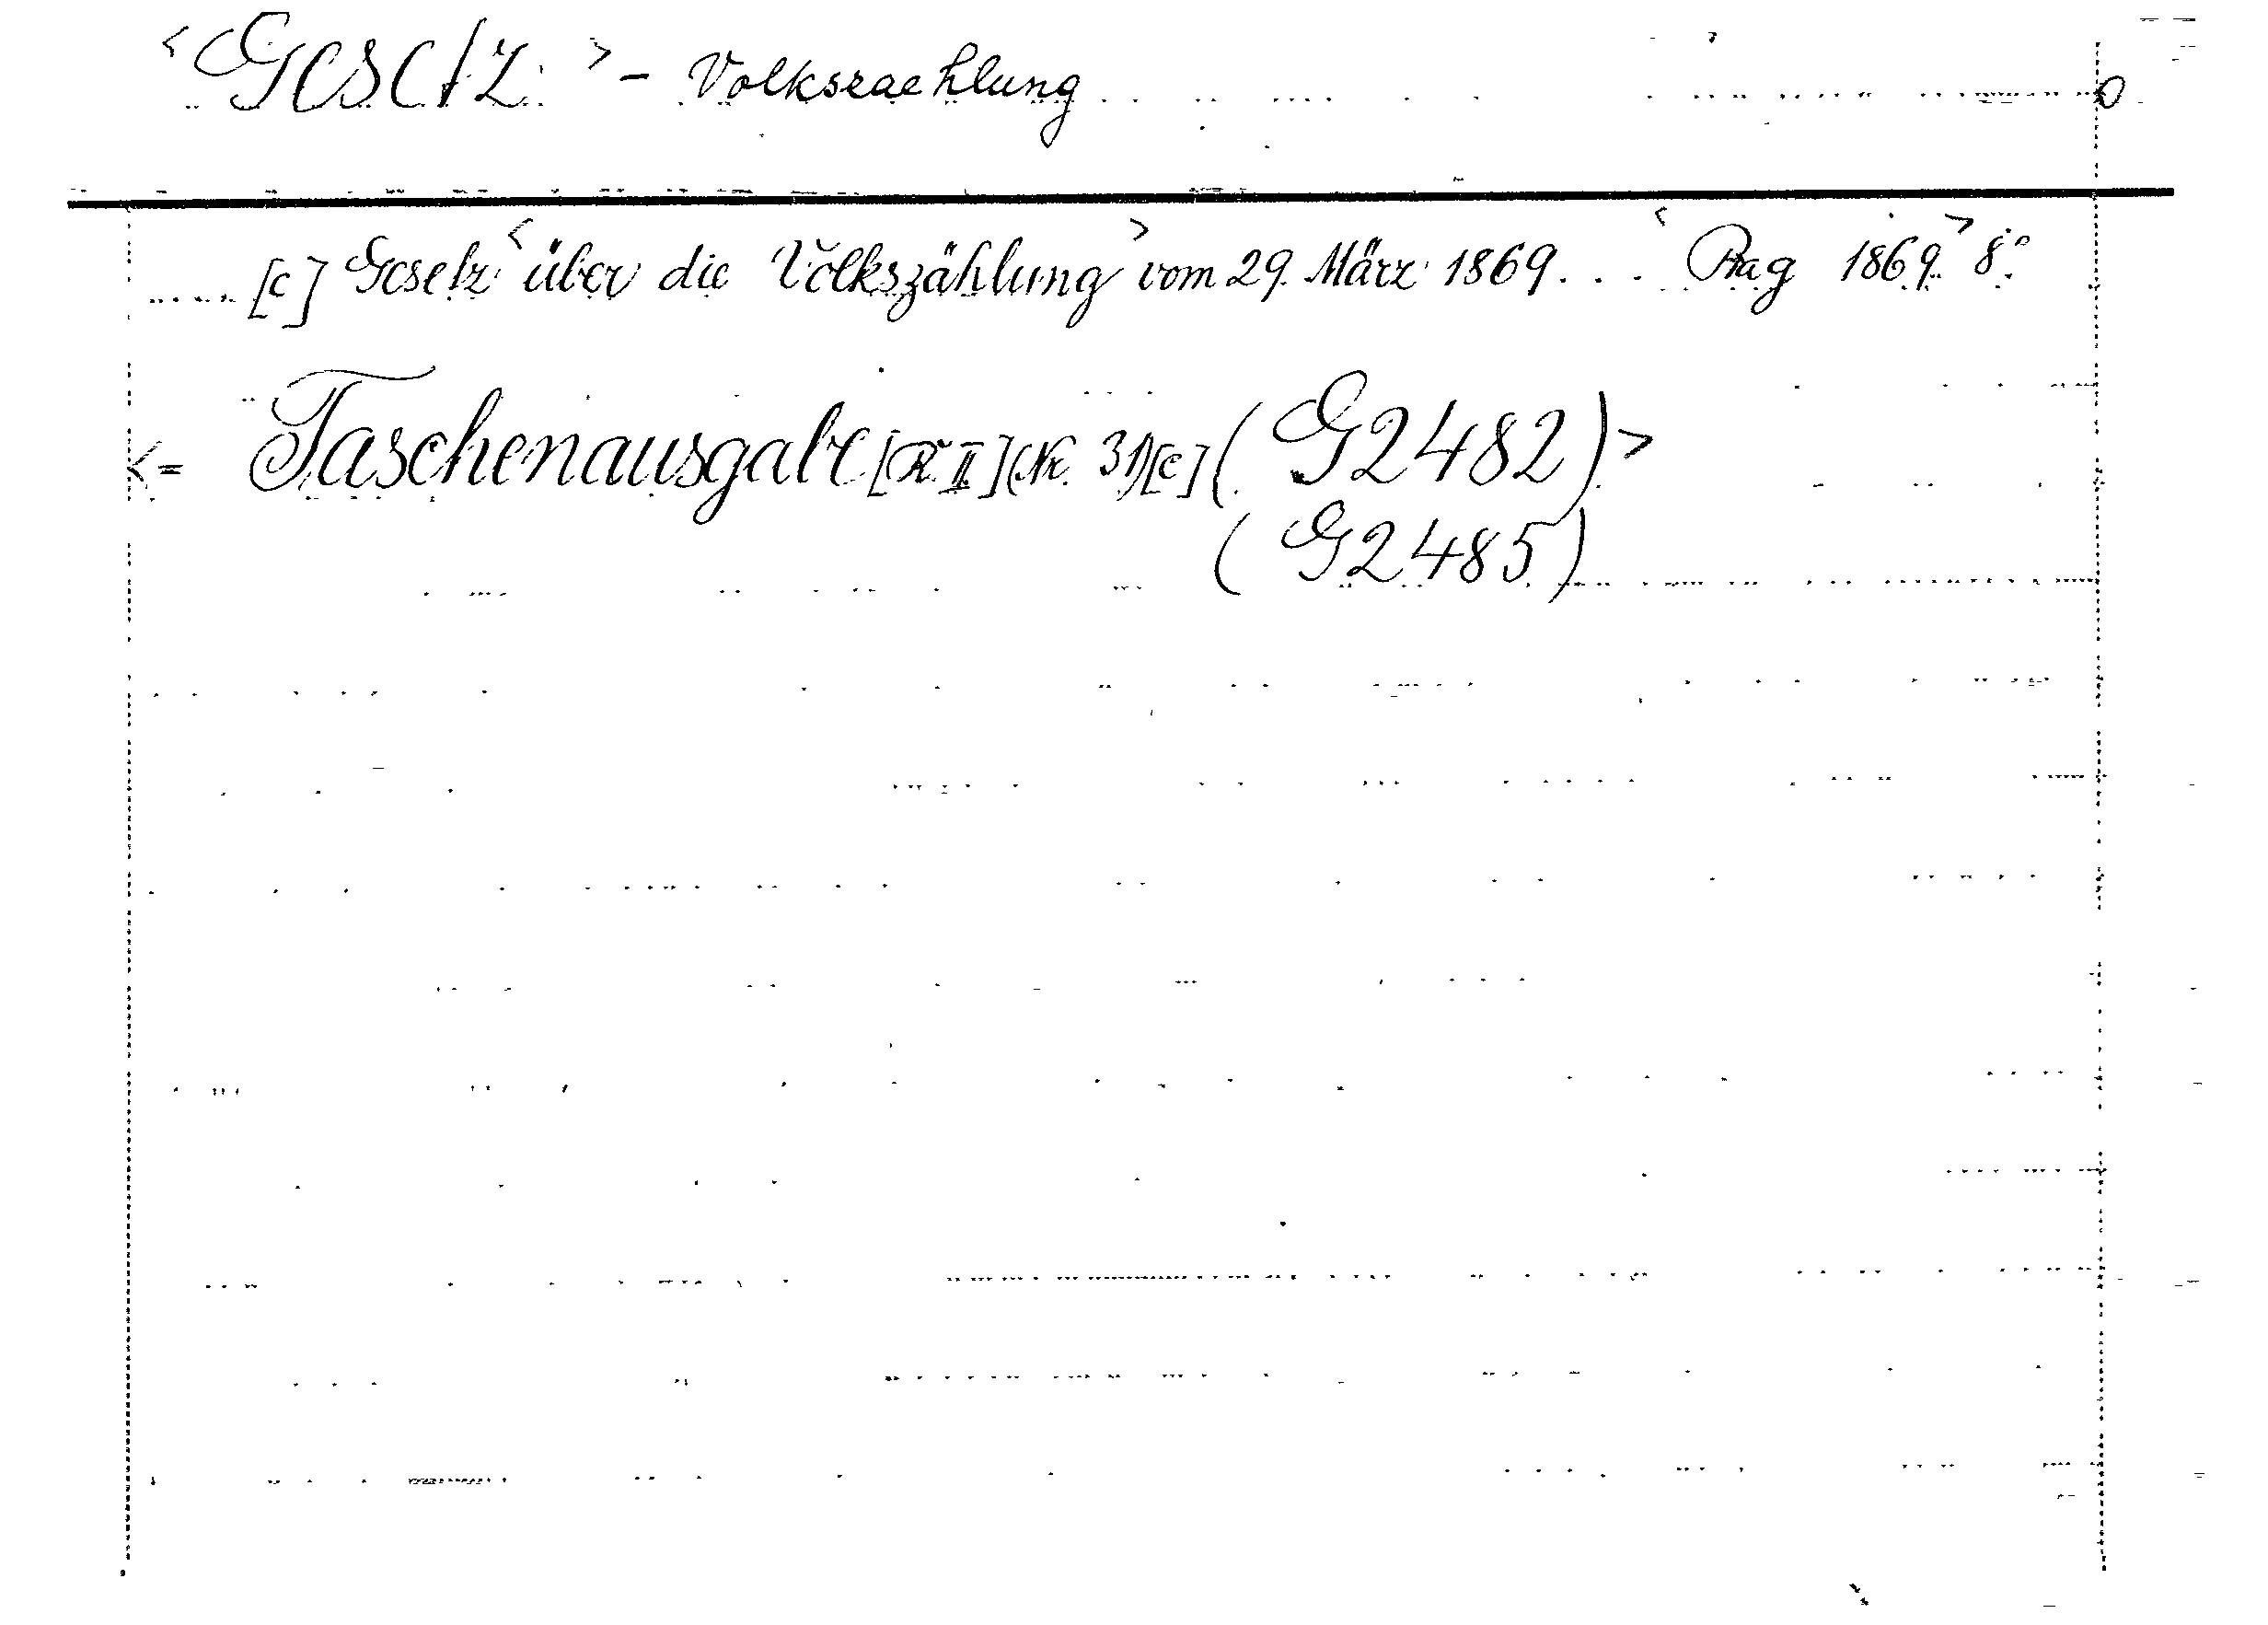 <Gesetz> - Volkszaehlung 0
[c] Gesetz <über die Volkszählung> vom 29. März 1869... <Prag 1869> 8°.
<= Taschenausgabe [R. II] (Nr. 31) [c] (G2482)>
(G2485)